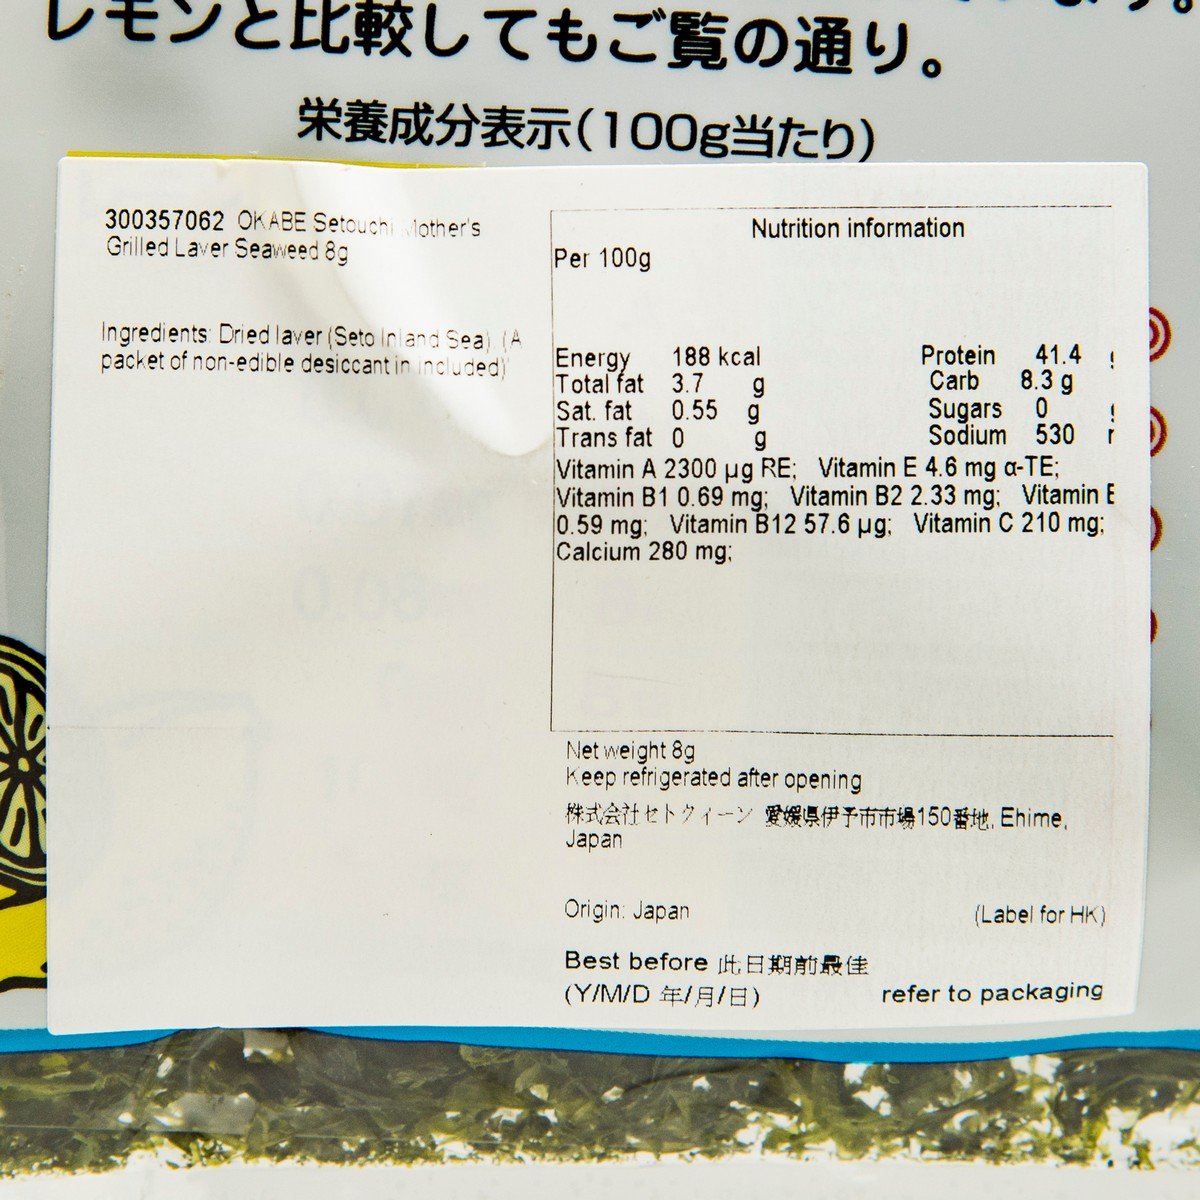 レモンと比較してもご覧の通り。
栄養成分表示(100g当たり)
300357062 OKABE Setouchi Mother's
Grilled Laver Seaweed 8g
Ingredients: Dried laver (Seto Inland Sea). (A
packet of non-edible desiccant in included)
Nutrition information
Per 100g
Energy 188 kcal Protein 41.4
Total fat 3.7 g Carb 8.3 g
Sat. fat 0.55 g Sugars 0
Trans fat 0 g Sodium 530
Vitamin A 2300 µg RE; Vitamin E 4.6 mg α-TE;
Vitamin B1 0.69 mg; Vitamin B2 2.33 mg; Vitamin
0.59 mg; Vitamin B12 57.6 µg; Vitamin C 210 mg;
Calcium 280 mg;
Net weight 8g
Keep refrigerated after opening
株式会社セトクィーン 愛媛県伊予市市場150番地, Ehime,
Japan
Origin: Japan (Label for HK)
Best before 此日期前最佳
(Y/M/D 年/月/日) refer to packaging